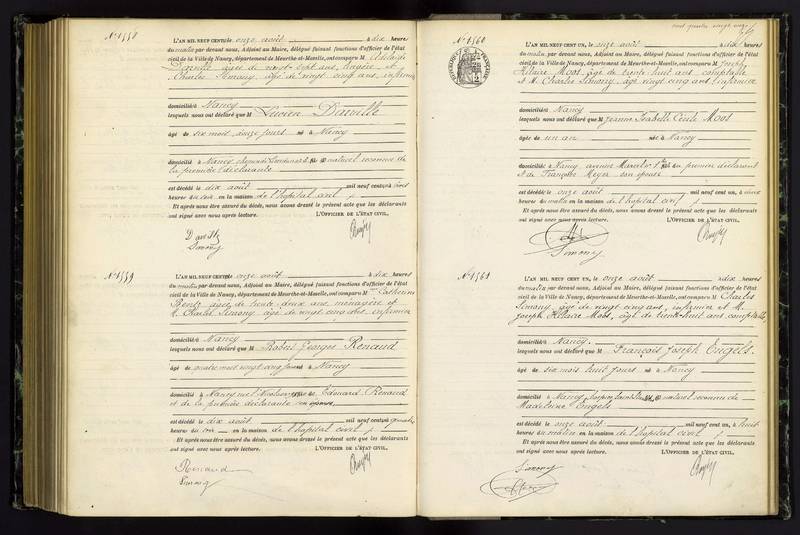 N° 1558
L'AN MIL NEUF CENT UN, le onze août, à dix heures
du matin par devant nous, Adjoint au Maire, délégué faisant fonctions d'officier de l'état
civil de la Ville de Nancy, département de Meurthe-et-Moselle, ont comparu M Adélaïde
Darville âgée de vingt sept ans, lingère et
Charles Simony, âgé de vingt cinq ans, infirmier
domiciliés à Nancy
lesquels nous ont déclaré que M Lucien Darville
âgé de six mois onze jours né à Nancy
domicilié à Nancy, naturel reconnu de
la première déclarante
est décédé le dix août mil neuf cent un à
heures du soir en la maison de l'hôpital civil
Et après nous être assuré du décès, nous avons dressé le présent acte que les déclarants
ont signé avec nous après lecture. L'OFFICIER DE L'ÉTAT CIVIL,
Simony
N° 1559
L'AN MIL NEUF CENT UN, le onze août à dix heures
du matin par devant nous, Adjoint au Maire, délégué faisant fonctions d'officier de l'état
civil de la Ville de Nancy, département de Meurthe-et-Moselle, ont comparu M Catherine
Rentz âgée de trente deux ans, ménagère et
M. Charles Simony âgé de vingt cinq ans, infirmier
domiciliés à Nancy
lesquels nous ont déclaré que M Robert Georges Renaud
âgé de quatre mois vingt cinq jours né à Nancy
domicilié à Nancy fils de Edouard Renaud
et de la première déclarante son épouse
est décédé le dix août mil neuf cent un à quatre
heures du soir en la maison de l'hôpital civil
Et après nous être assuré du décès, nous avons dressé le présent acte que les déclarants
ont signé avec nous après lecture. L'OFFICIER DE L'ÉTAT CIVIL,
Renaud
Simony
N° 1560
L'AN MIL NEUF CENT UN, le onze août à dix heures
du matin par devant nous, Adjoint au Maire, délégué faisant fonctions d'officier de l'état
civil de la Ville de Nancy, département de Meurthe-et-Moselle, ont comparu M Joseph
Hilaire Moos, âgé de trente huit ans comptable
et M. Charles Simony, âgé vingt cinq ans, infirmier
domiciliés à Nancy
lesquels nous ont déclaré que M Jeanne Isabelle Cécile Moos
âgée de un an née à Nancy
domiciliée à Nancy, avenue du premier déclarant
et de Françoise Meyer son épouse
est décédée le onze août mil neuf cent un, à deux
heures du matin en la maison de l'hôpital civil
Et après nous être assuré du décès, nous avons dressé le présent acte que les déclarants
ont signé avec nous après lecture. L'OFFICIER DE L'ÉTAT CIVIL,
Simony
N° 1561
L'AN MIL NEUF CENT UN, le onze août à dix heures
du matin par devant nous, Adjoint au Maire, délégué faisant fonctions d'officier de l'état
civil de la Ville de Nancy, département de Meurthe-et-Moselle, ont comparu M Charles
Simony, âgé de vingt cinq ans, infirmier et M.
Joseph Hilaire Moos, âgé de trente huit ans, comptable,
domiciliés à Nancy.
lesquels nous ont déclaré que M François Joseph Engels.
âgé de six mois huit jours né à Nancy
domicilié à Nancy, naturel reconnu de
Madeleine Engels
est décédé le onze août mil neuf cent un, à huit
heures du matin en la maison de l'hôpital civil
Et après nous être assuré du décès, nous avons dressé le présent acte que les déclarants
ont signé avec nous après lecture. L'OFFICIER DE L'ÉTAT CIVIL,
Simony